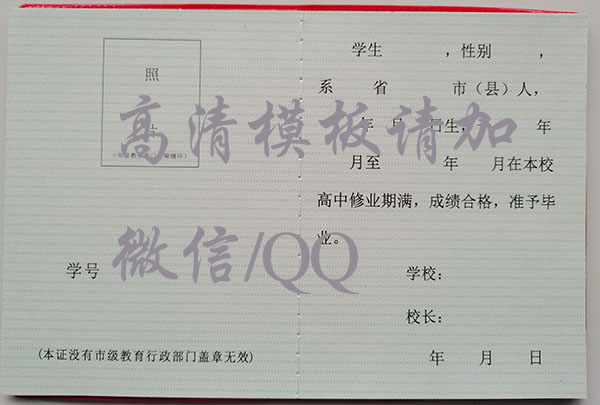 照
片
学号
(本证没有市级教育行政部门盖章无效)
学生　　　,性别　　,
系　　省　　　市(县)人,
年　月　　日生,　　　年
月至　　　年　　月在本校
高中修业期满,成绩合格,准予毕
业。
学校:
校长:
年　月　日
高清模板请加
微信/QQ